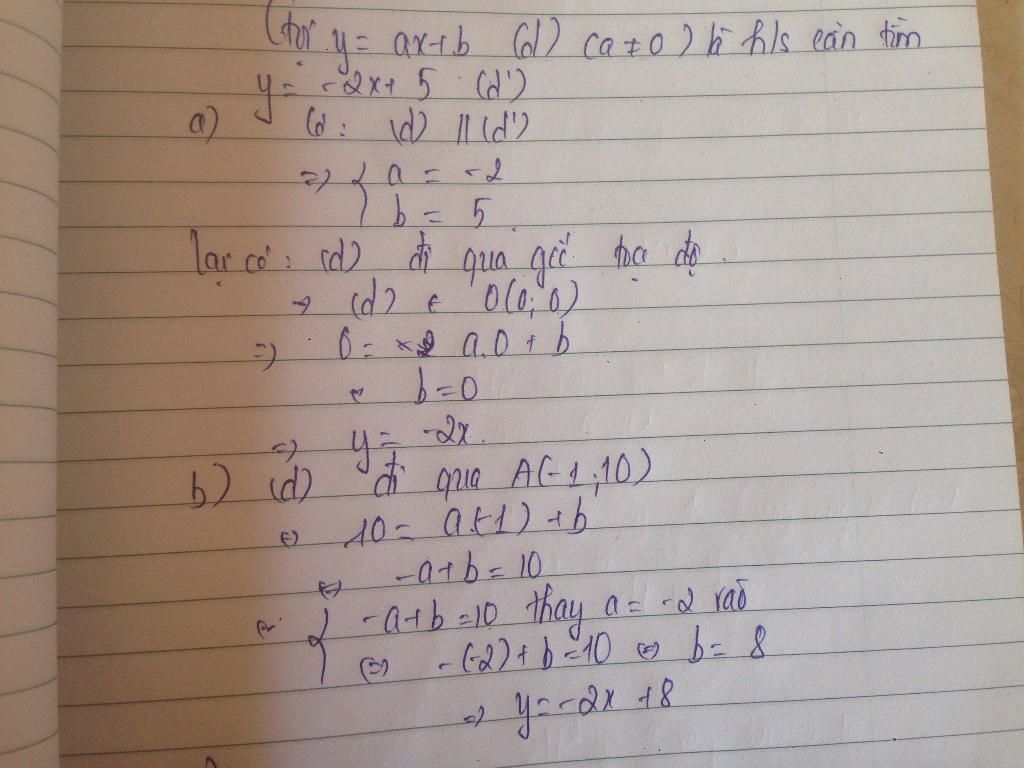 Gọi y = ax+b (d) (a ≠ 0) là h/s cần tìm
y = -2x+ 5 (d')
a) Có : (d) // (d')
=> { a = -2
b = 5
Lại có : (d) đi qua gốc tọa độ .
→ (d) ∈ O(0; 0)
=> 0 = a.0 + b
b = 0
=> y = -2x.
b) (d) đi qua A(-1;10)
⇔ 10 = a.(-1) + b
⇔ -a+b = 10
{ -a+b = 10 thay a = -2 vào
⇔ -(-2) + b = 10 ⇔ b = 8
=> y = -2x +8